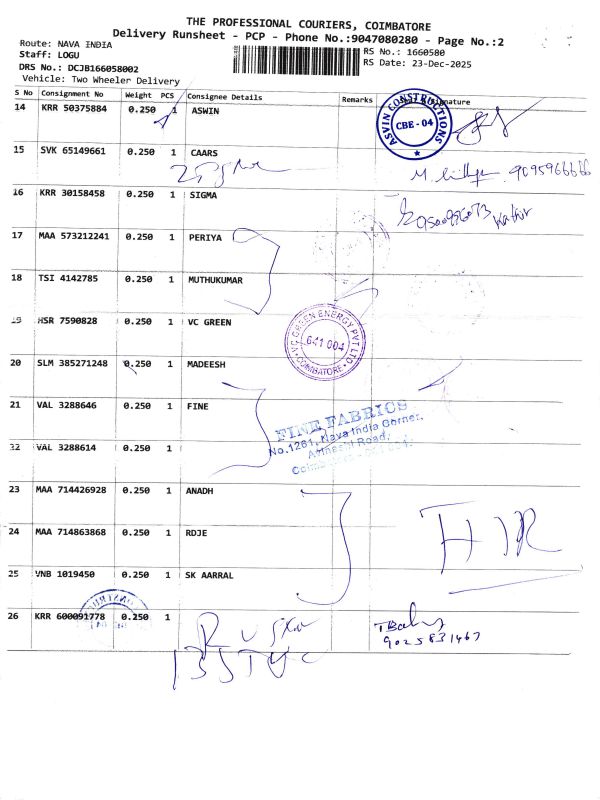 THE PROFESSIONAL COURIERS, COIMBATORE
Delivery Runsheet - PCP - Phone No.:9047080280 - Page No.:2
Route: NAVA INDIA
RS No.: 1660580
Staff: LOGU
RS Date: 23-Dec-2025
DRS No.: DCJB166058002
Vehicle: Two Wheeler Delivery
S No Consignment No Weight PCS Consignee Details Remarks Signature
14 KRR 50375884 0.250 1 ASWIN
ASVIN CONSTRUCTIONS
CBE - 04
15 SVK 65149661 0.250 1 CAARS
9095966666
16 KRR 30158458 0.250 1 SIGMA
17 MAA 573212241 0.250 1 PERIYA
18 TSI 4142785 0.250 1 MUTHUKUMAR
19 HSR 7590828 0.250 1 VC GREEN
GREEN ENERGY PVT LTD
641 004
COIMBATORE
20 SLM 385271248 0.250 1 MADEESH
21 VAL 3288646 0.250 1 FINE
FINE FABRICS
No.1261, Nava India Corner,
Avinashi Road,
22 VAL 3288614 0.250 1
23 MAA 714426928 0.250 1 ANADH
24 MAA 714863868 0.250 1 RDJE
25 VNB 1019450 0.250 1 SK AARRAL
26 KRR 600091778 0.250 1
9025831467